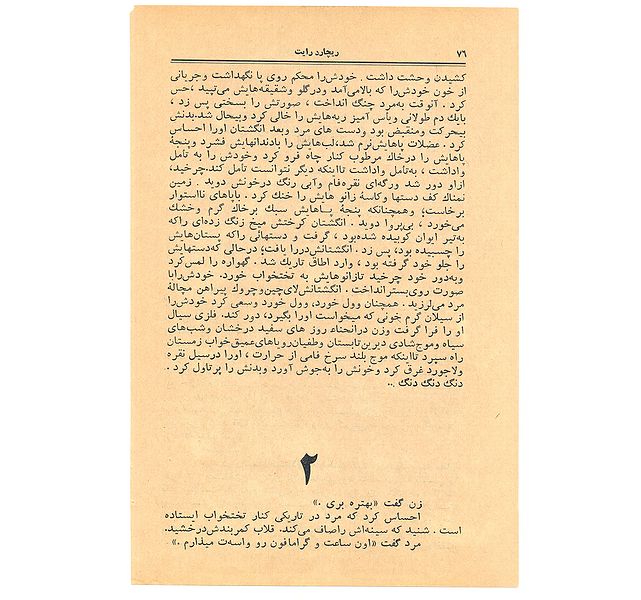 ۷۶
ریچارد رایت
کشیدن وحشت داشت . خودش‌را محکم روی پا نگهداشت وجریانی
از خون خودش‌را که بالامی‌آمد ودرگلو وشقیقه‌هایش می‌تپید ،حس
کرد . آنوقت به‌مرد چنگ انداخت ، صورتش را بسختی پس زد ،
بایک دم طولانی ویأس آمیز ریه‌هایش را خالی کرد وبیحال شد.بدنش
بیحرکت ومنقبض بود ودست های مرد وبعد انگشتان اورا احساس
کرد . عضلات پاهایش‌نرم شد،لب‌هایش را بادندانهایش فشرد وپنجهٔ
پاهایش را درخاك مرطوب کنار چاه فرو کرد وخودش را به تأمل
واداشت ، به‌تأمل واداشت تااینکه دیگر نتوانست تأمل کند.چرخید،
ازاو دور شد ورگه‌ای نقره‌فام وآبی رنگ درخونش دوید . زمین
نمناك کف دستها وکاسهٔ زانو هایش را خنك کرد . باپاهای نااستوار
برخاست؛ وهمچنانکه پنجهٔ پـاهایش سبك برخاك گرم وخشك
می‌خورد ، بی‌پروا دوید . انگشتان کرختش میخ زنگ زده‌ای راکه
به‌تیر ایوان کوبیده شده‌بود ، گرفت و دستهائی راکه پستان‌هایش
را چسبیده بود، پس زد . انگشتانش‌دررا یافت؛ درحالی که‌دستهایش
را جلو خود گرفته بود ، وارد اطاق تاریك شد . گهواره را لمس‌کرد
وبه‌دور خود چرخید تازانوهایش به تختخواب خورد. خودش‌رابا
صورت روی‌بسترانداخت . انگشتانش‌لای‌چین‌وچروك پیراهن مچالهٔ
مرد می‌لرزید . همچنان وول خورد، وول خورد وسعی کرد خودش‌را
از سیلان گرم جنونی که میخواست اورا بگیرد، دور کند. فلزی سیال
او را فرا گرفت وزن درانحناء روز های سفید درخشان وشب‌های
سیاه وموج‌شادی دیرین‌تابستان وطغیان‌رویاهای‌عمیق‌خواب زمستان
راه سپرد تااینکه موج بلند سرخ فامی از حرارت ، اورا درسیل نقره
ولاجورد غرق کرد وخونش را به‌جوش آورد وبدنش را پرتاول کرد .
دنگ دنگ دنگ ..
۲
زن گفت «بهتره بری .»
احساس کرد که مرد در تاریکی کنار تختخواب ایستاده
است . شنید که سینه‌اش راصاف می‌کند. قلاب کمربندش‌درخشید.
مرد گفت «اون ساعت و گرامافون رو واسه‌ت میذارم .»